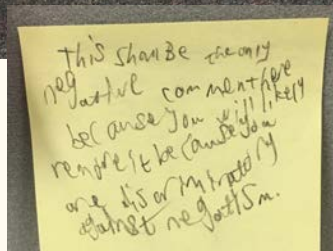 This Shall Be the only
negative comment here
because you will likely
remove it because you
are discriminatory
against negatism.